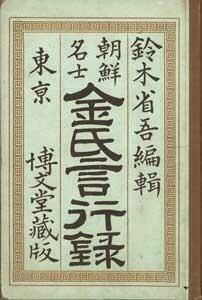 鈴木省吾編輯
朝鮮名士
金氏言行録
東京
博文堂藏版